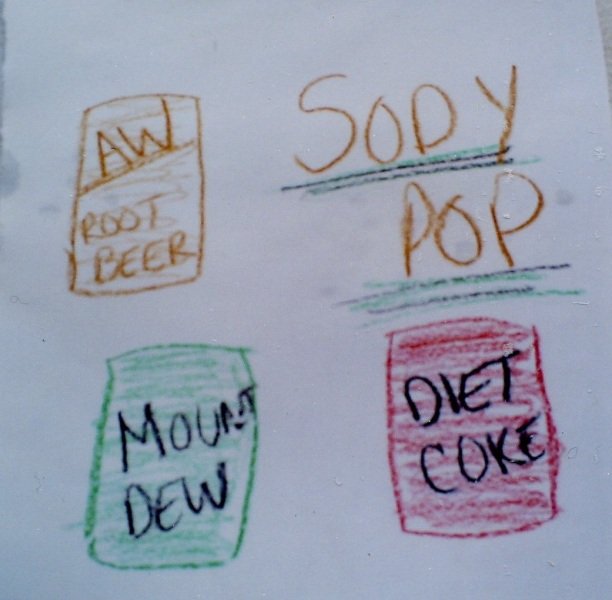 AW
ROOT
BEER
SODY
POP
MOUNT
DEW
DIET
COKE